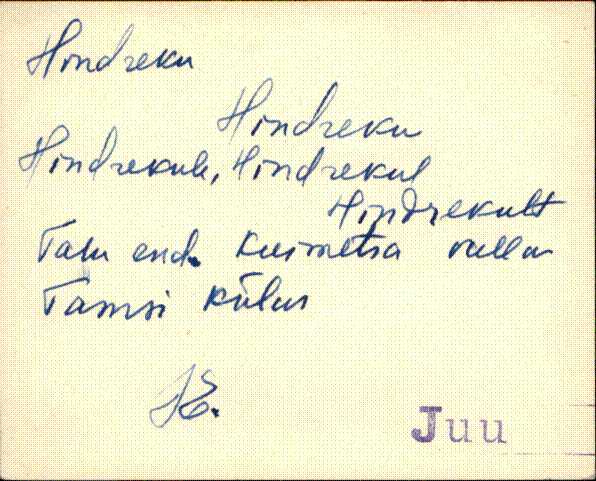 Hindreku
Hindreku
Hindrekule, Hindrekul
Hindrekult
Talu end. Kuimetsa valla
Tamsi külas
JE.
Juu